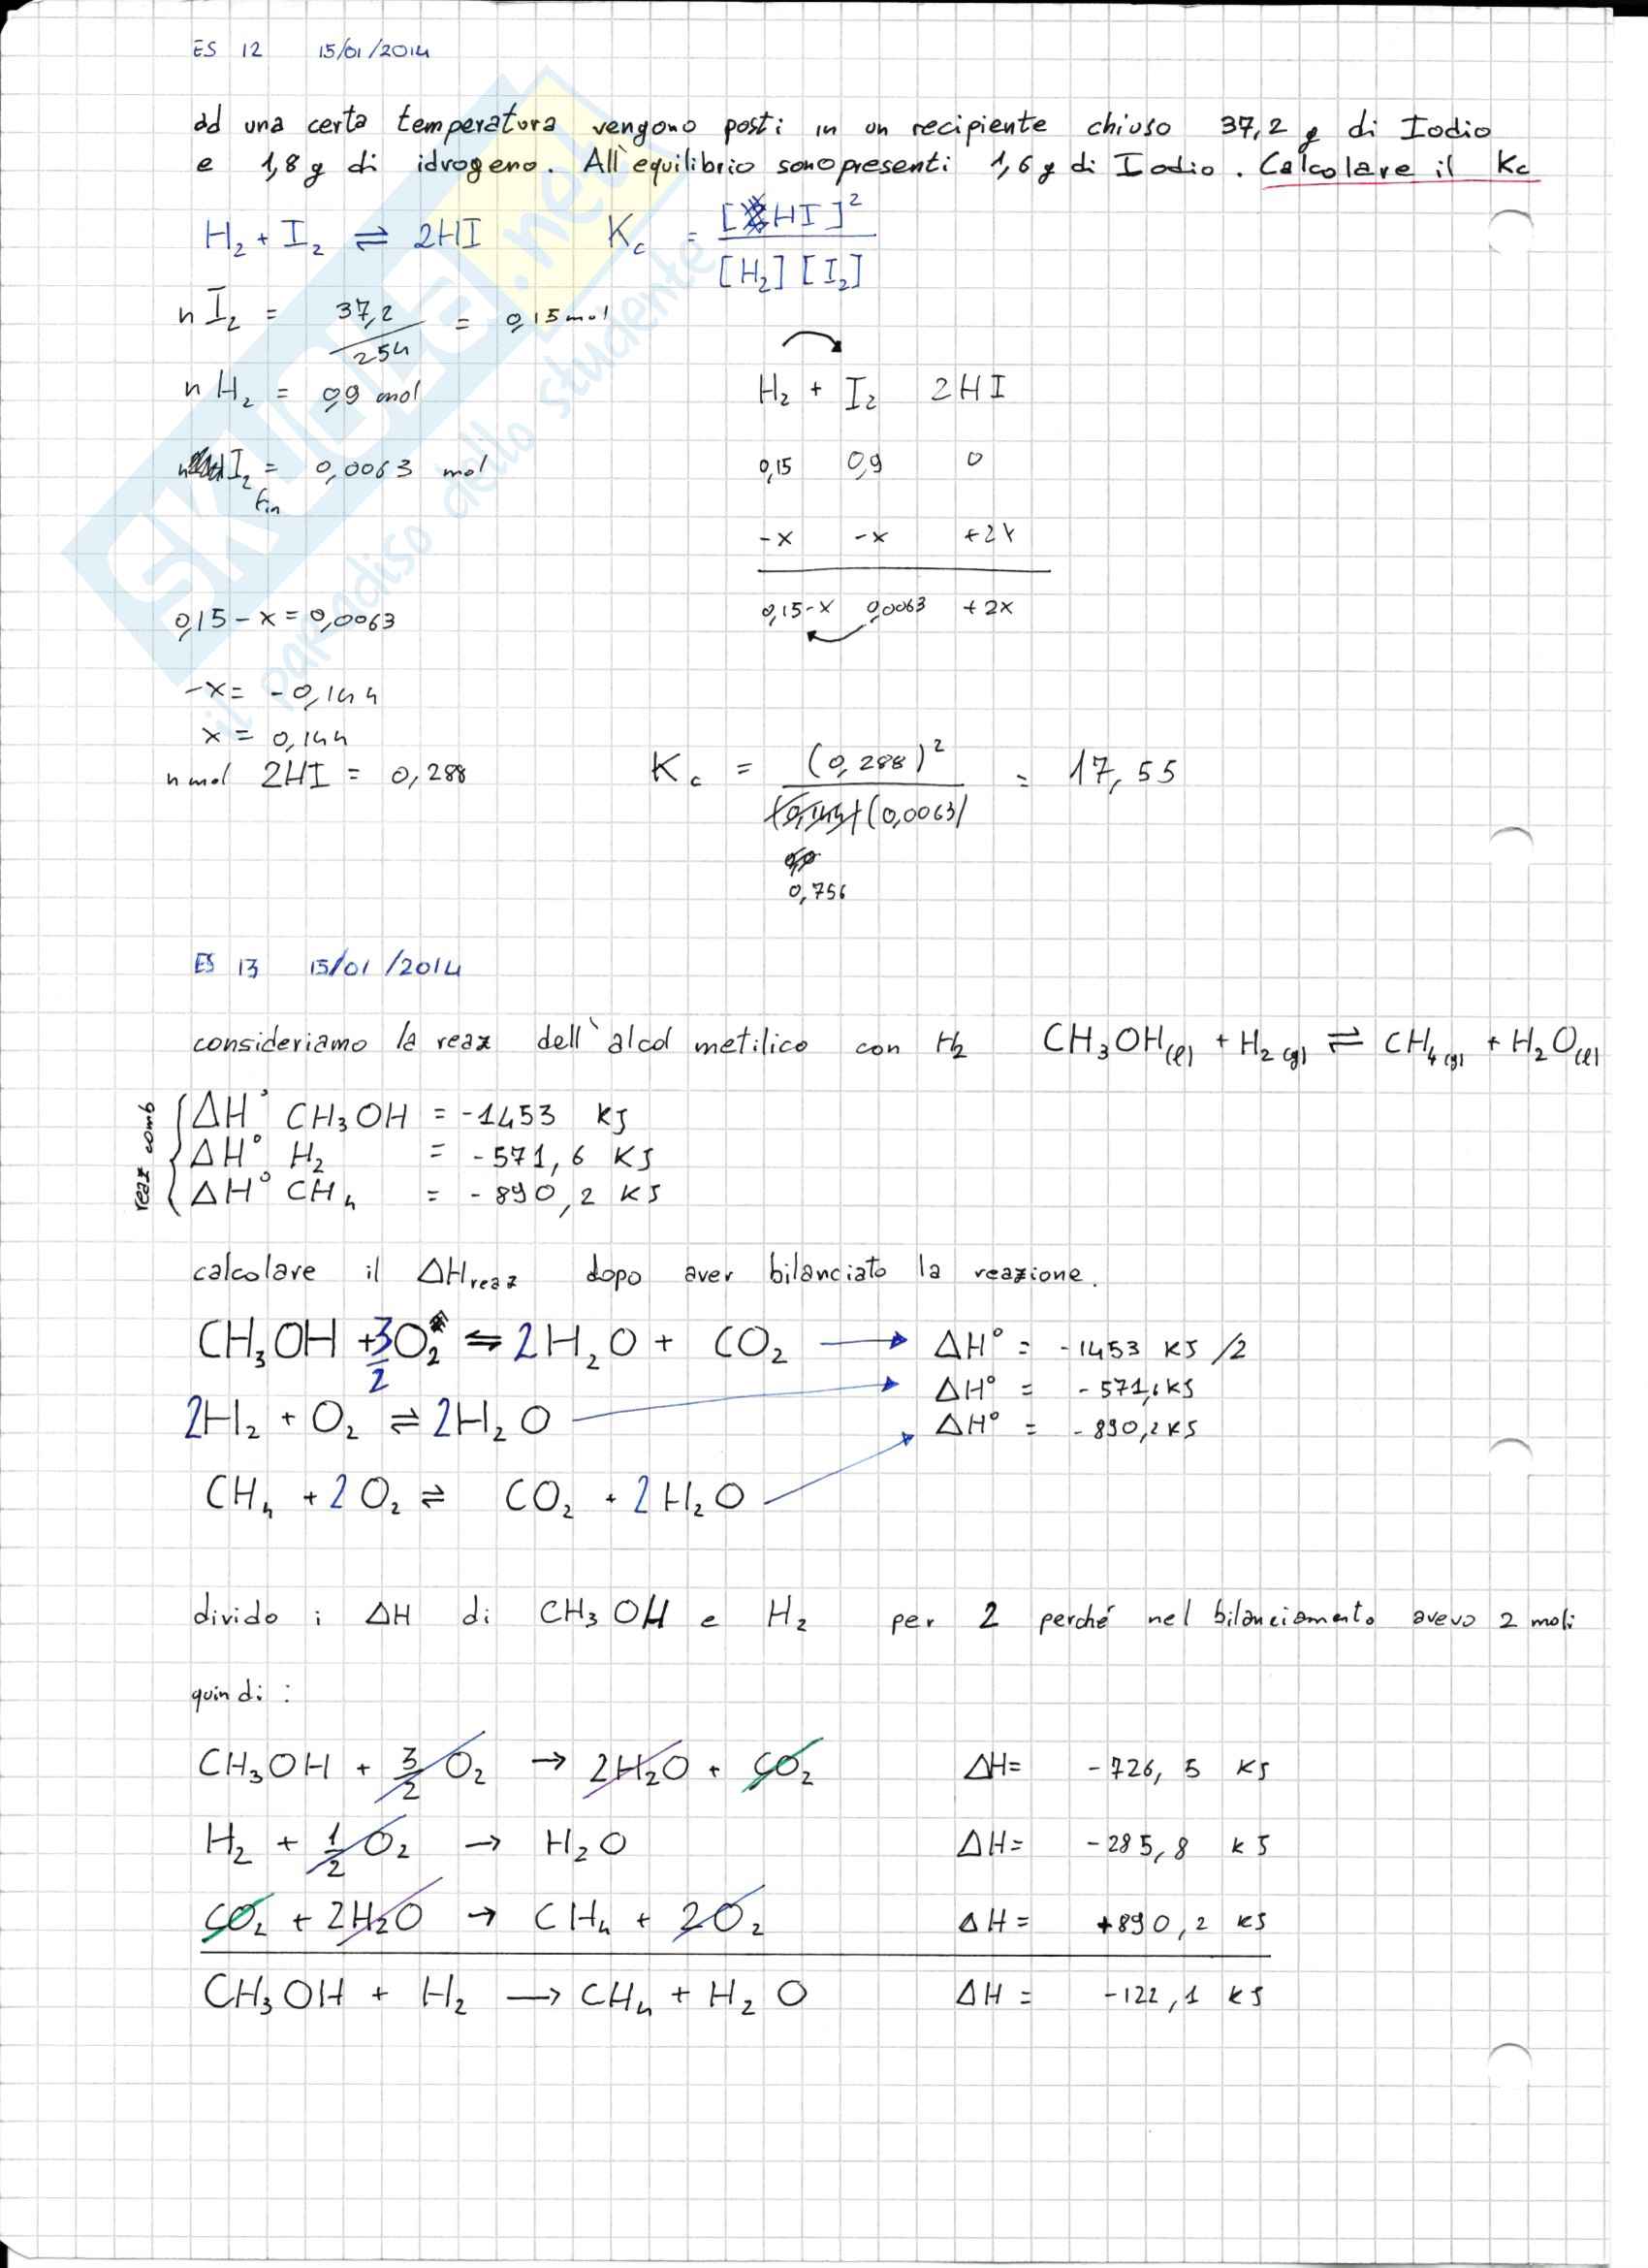 ES 12 15/01/2014
ad una certa temperatura vengono posti in un recipiente chiuso 37,2 g di Iodio
e 1,8 g di idrogeno. All'equilibrio sono presenti 1,6 g di Iodio. Calcolare il Kc
H₂ + I₂ ⇌ 2HI Kc = [HI]² / [H₂][I₂]
n I₂ = 37,2 / 254 = 0,15 mol
n H₂ = 0,9 mol H₂ + I₂ 2HI
n I₂ fin = 0,0063 mol 0,15 0,9 0
-x -x +2x
0,15-x 0,0063 +2x
0,15 - x = 0,0063
-x = -0,144
x = 0,144
n mol 2HI = 0,288 Kc = (0,288)² / (0,0063) = 17,55
0,756
ES 13 15/01/2014
consideriamo la reaz dell'alcol metilico con H₂ CH₃OH(l) + H₂(g) ⇌ CH₄(g) + H₂O(l)
reaz comb
ΔH° CH₃OH = -1453 KJ
ΔH° H₂ = -571,6 KJ
ΔH° CH₄ = -890,2 KJ
calcolare il ΔHreaz dopo aver bilanciato la reazione.
CH₃OH + 3/2 O₂ ⇌ 2H₂O + CO₂ → ΔH° = -1453 KJ /2
ΔH° = -571,6 KJ
2H₂ + O₂ ⇌ 2H₂O
ΔH° = -890,2 KJ
CH₄ + 2O₂ ⇌ CO₂ + 2H₂O
divido i ΔH di CH₃OH e H₂ per 2 perché nel bilanciamento avevo 2 moli
quindi:
CH₃OH + 3/2 O₂ → 2H₂O + CO₂ ΔH = -726,5 KJ
H₂ + 1/2 O₂ → H₂O ΔH = -285,8 KJ
CO₂ + 2H₂O → CH₄ + 2O₂ ΔH = +890,2 KJ
CH₃OH + H₂ → CH₄ + H₂O ΔH = -122,1 KJ
SKUOLA.net
il paradiso dello studente